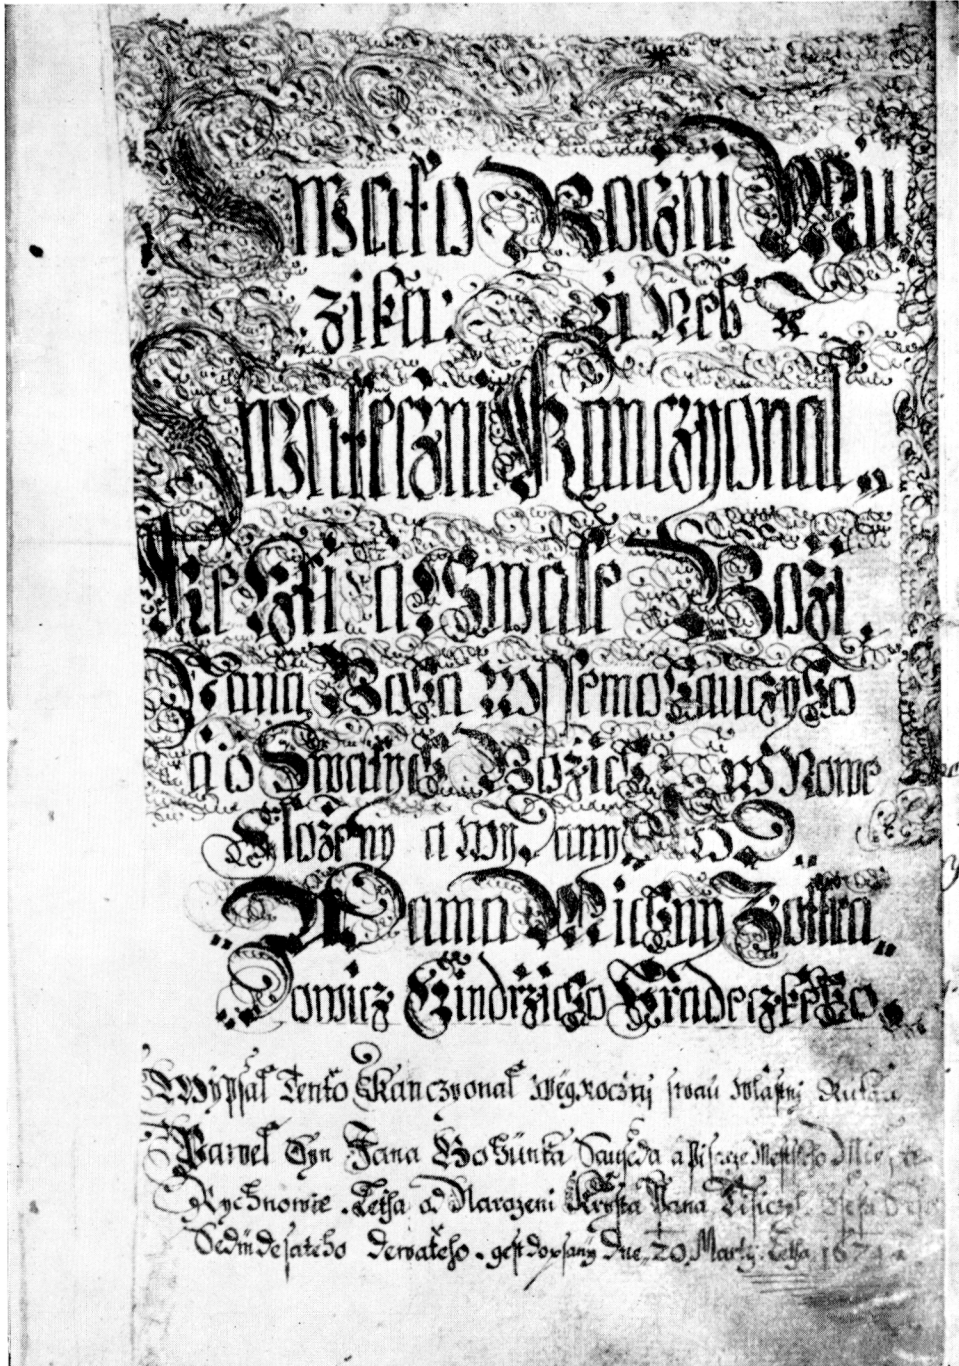 Swato Roczni Mu
zika: Aneb
Swateczni Kanczyonal„
Ke Czti a Chwale Bozi,
Pana Boha wssemohauczyho
a o Swatych Bozich W Nowe
Slozeny a wydany W
Adama Michny Z Ottra
dowicz Gindrzicho Hradeczkeho.
Wypsal Tento Kanczyonal wegroczny swau wlastny Rukau
Pawel Syn Jana Bohunka Sauseda a Pisarze Mestskeho Mieste
Rychnowie. Letha od Narozeni Krysta Pana Tisiczy
Sedmdesateho dewateho. gest dopsany dne 20 Marty. Letha